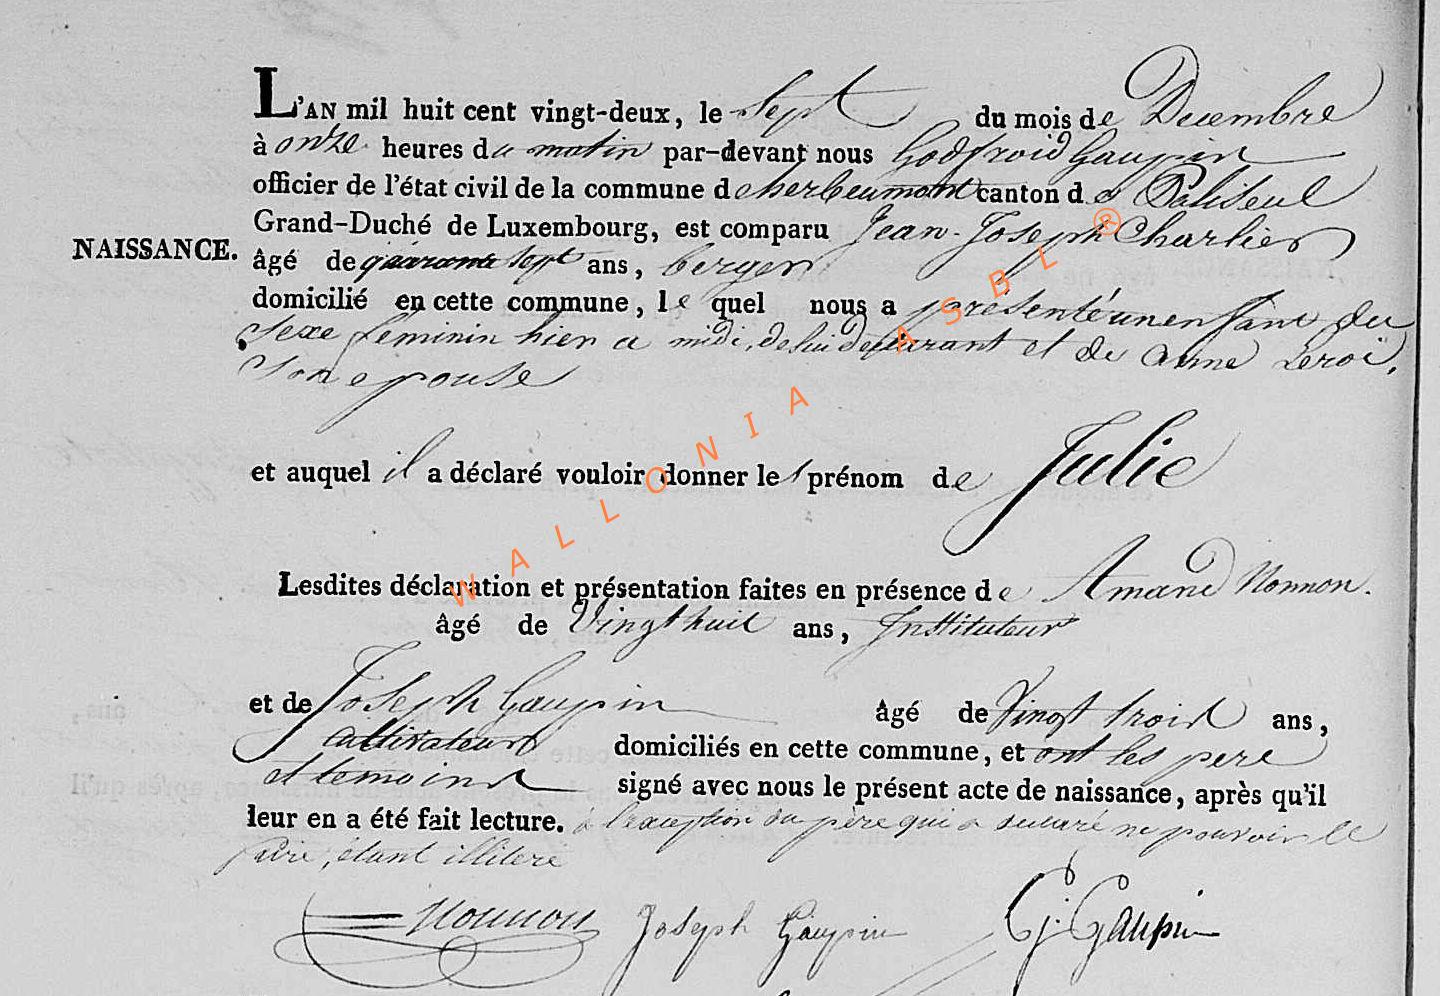 L'AN mil huit cent vingt-deux, le sept du mois de Decembre
à onze heures du matin par-devant nous Godfroid Gaupin
officier de l'état civil de la commune d'herbeumont canton de Paliseul
Grand-Duché de Luxembourg, est comparu Jean-Joseph Charlier
NAISSANCE.
âgé de quarante sept ans, berger
domicilié en cette commune, le quel nous a présenté un enfant du
sexe feminin hier a midi, de lui declarant et de anne Leroi,
son epouse
et auquel il a déclaré vouloir donner les prénom de Julie
Lesdites déclaration et présentation faites en présence de Amand Nonnon.
âgé de Vingt huit ans, Instituteur
et de Joseph Gaupin âgé de Vingt trois ans,
cultivateur domiciliés en cette commune, et ont les pere
et temoins signé avec nous le présent acte de naissance, après qu'il
leur en a été fait lecture. à l'exception du père qui a declaré ne pouvoir le
faire, étant illiteré
Nonnon Joseph Gaupin G. Gaupin
WALLONIA ASBL ®